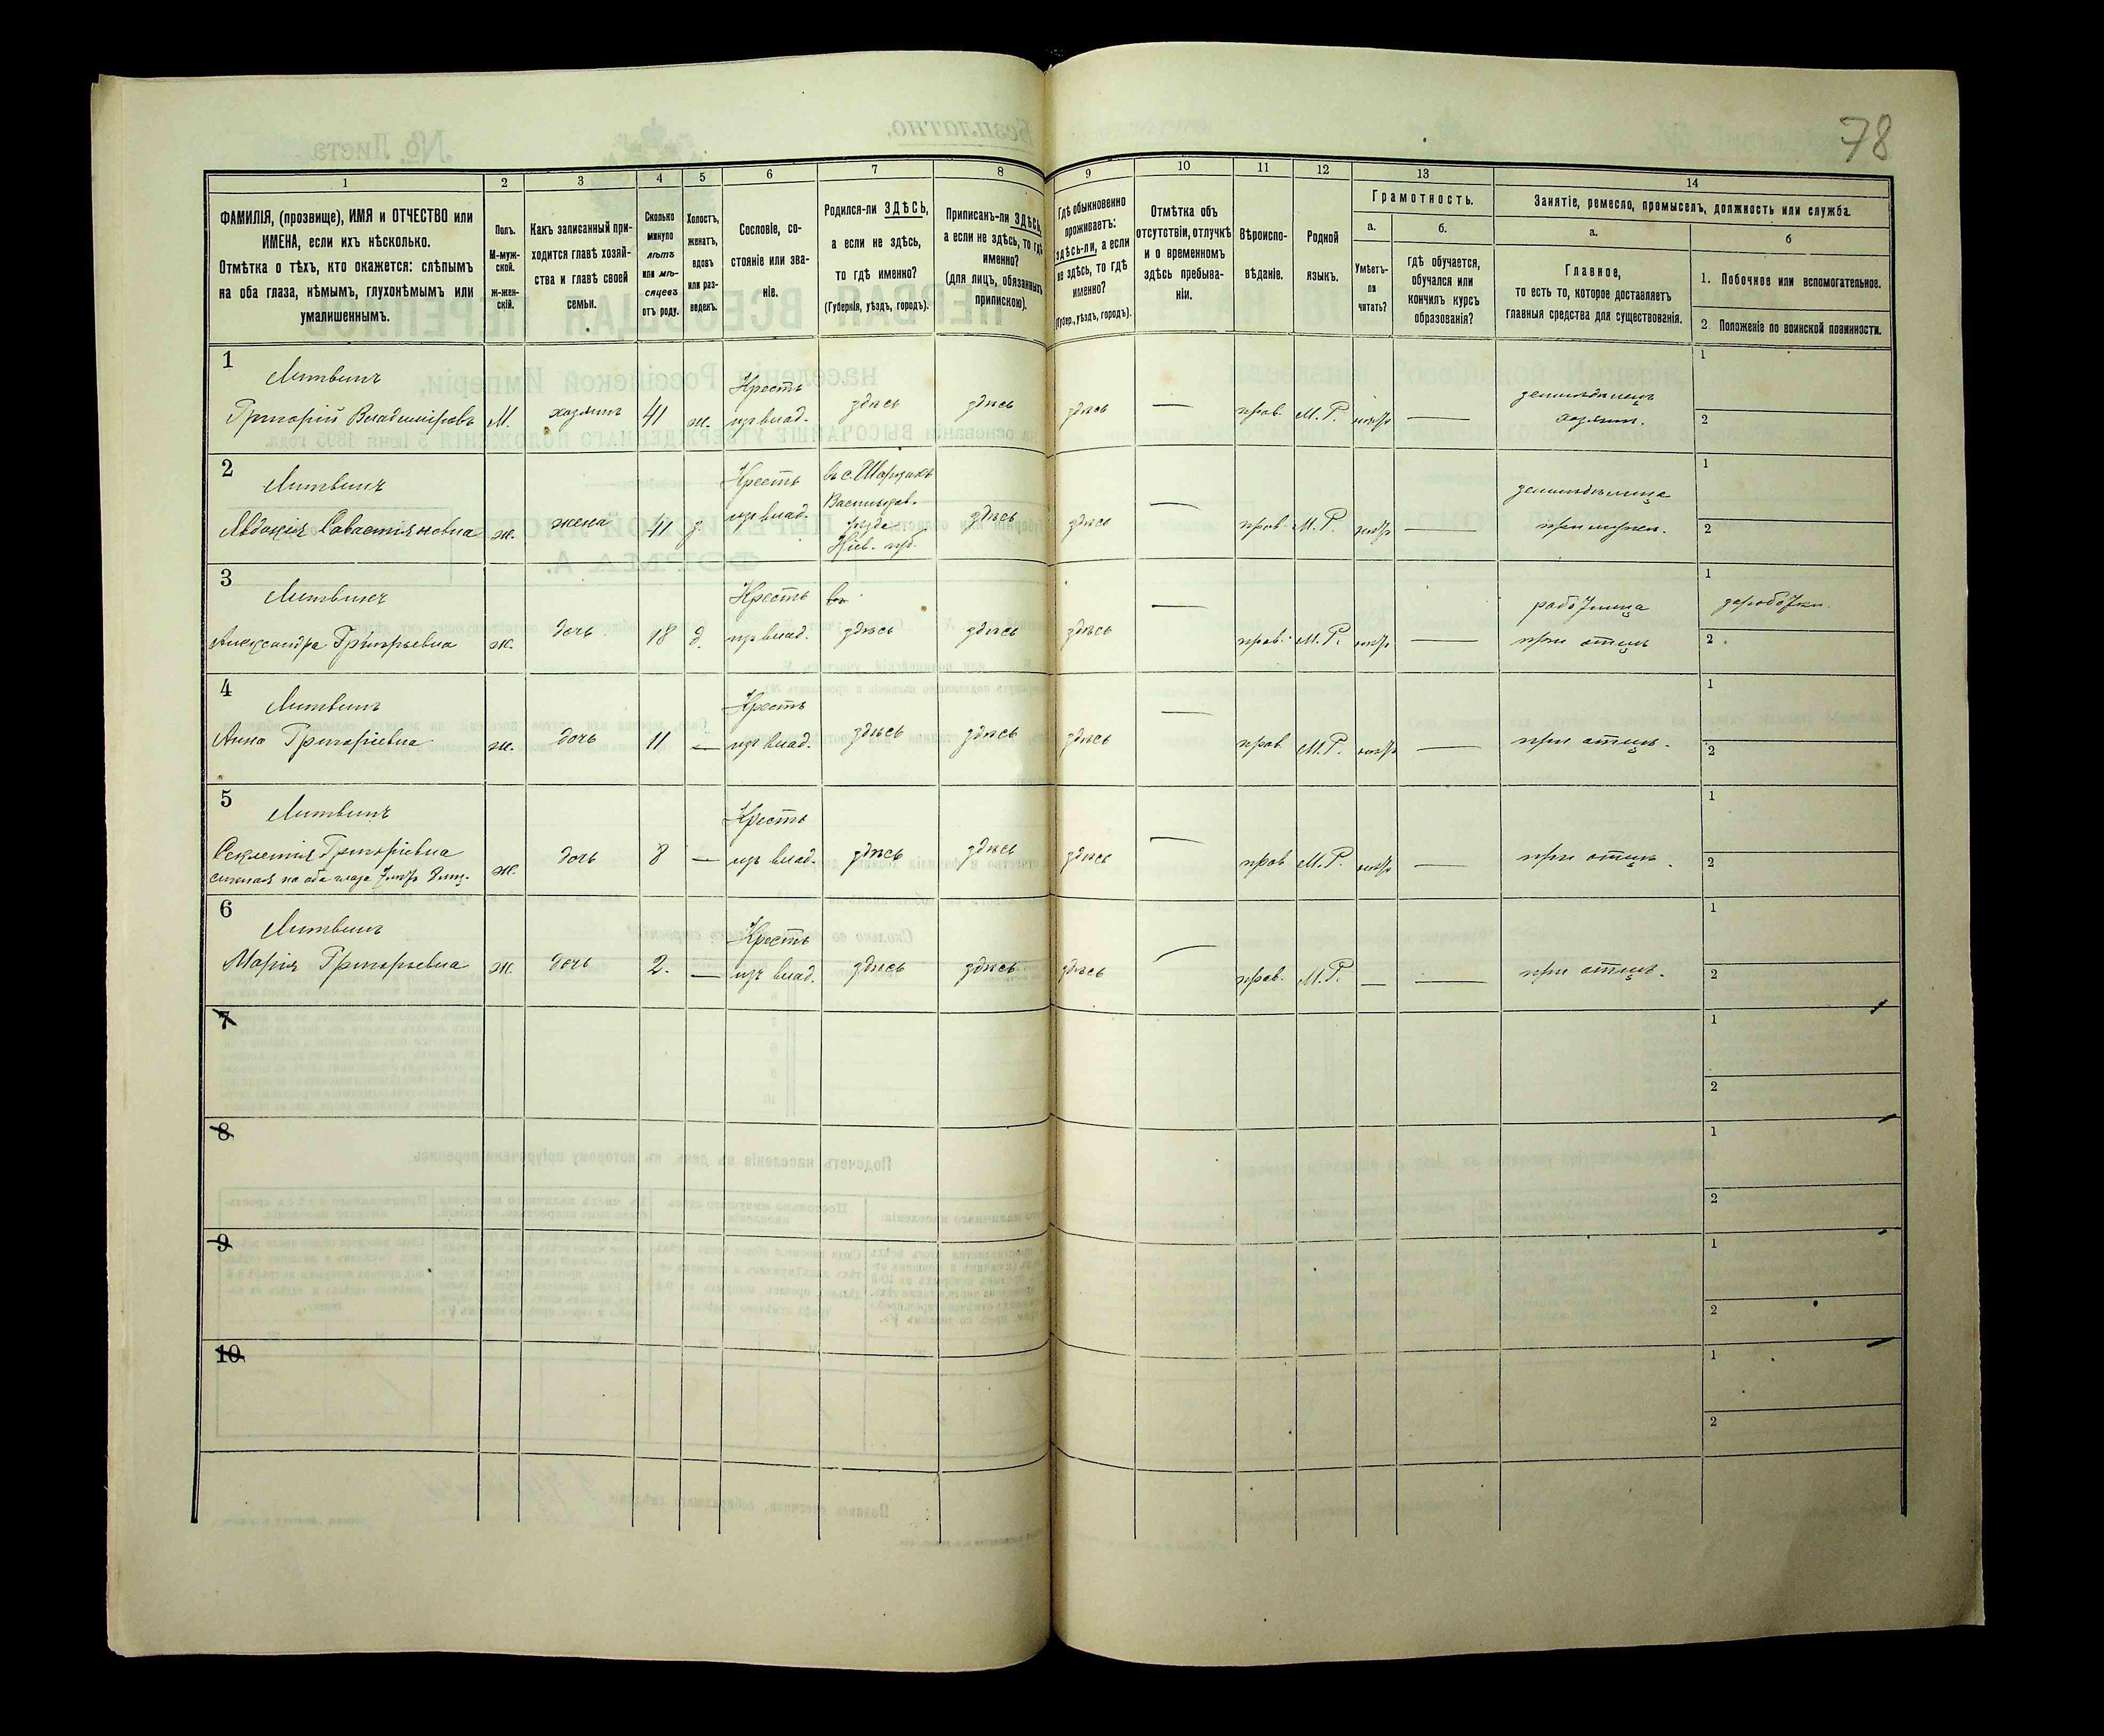 78
1 2 3 4 5 6 7 8 9 10 11 12 13 14
ФАМИЛІЯ, (прозвище), ИМЯ и ОТЧЕСТВО или
ИМЕНА, если ихъ нѣсколько.
Отмѣтка о тѣхъ, кто окажется: слѣпымъ
на оба глаза, нѣмымъ, глухонѣмымъ или
умалишеннымъ.
Полъ.
М-муж-
ской.
Ж-жен-
скій.
Какъ записанный при-
ходится главѣ хозяй-
ства и главѣ своей
семьи.
Сколько
минуло
лѣтъ
или мѣ-
сяцевъ
отъ роду.
Холостъ,
женатъ,
вдовъ
или раз-
веденъ.
Сословіе, со-
стояніе или зва-
ніе.
Родился-ли ЗДѢСЬ,
а если не здѣсь,
то гдѣ именно?
(Губернія, уѣздъ, городъ).
Приписанъ-ли ЗДѢСЬ,
а если не здѣсь, то гдѣ
именно?
(для лицъ, обязанныхъ
припискою).
Гдѣ обыкновенно
проживаетъ:
здѣсь-ли, а если
не здѣсь, то гдѣ
именно?
(Губер., уѣздъ, городъ).
Отмѣтка объ
отсутствіи, отлучкѣ
и о временномъ
здѣсь пребыва-
ніи.
Вѣроиспо-
вѣданіе.
Родной
языкъ.
Грамотность.
а.
Умѣетъ-
ли
читать?
б.
гдѣ обучается,
обучался или
кончилъ курсъ
образованія?
Занятіе, ремесло, промыселъ, должность или служба.
а.
Главное,
то есть то, которое доставляетъ
главныя средства для существованія.
б
1. Побочное или вспомогательное.
2. Положеніе по воинской повинности.
1 Литвинъ
Григорій Владиміровъ М. хозяинъ 41 ж. Крестъ
изъ влад. здѣсь здѣсь здѣсь — прав. М.Р. — земледѣлецъ
хозяинъ. 1
2
2 Литвинъ
Явдокія Савастіяновна ж. жена 41 з Крестъ
изъ влад. въ с.
Васильков.
уѣзда
Кіев. губ. здѣсь здѣсь — прав. М.Р. — земледѣлица
при мужи. 1
2
3 Литвинъ
Александра Григорьевна ж. дочь 18 д. Крестъ
изъ влад. здѣсь здѣсь здѣсь — прав. М.Р. — работница
при отцѣ 1 заработки.
2
4 Литвинъ
Анна Григоріевна ж. дочь 11 — Крестъ
изъ влад. здѣсь здѣсь здѣсь — прав М.Р. — при отцѣ. 1
2
5 Литвинъ
Секлетія Григоріевна
слѣпая на оба глаза ж. дочь 8 — Крестъ
изъ влад. здѣсь здѣсь здѣсь — прав М.Р. — при отцѣ. 1
2
6 Литвинъ
Марія Григорьевна ж. дочь 2. — Крестъ
изъ влад. здѣсь здѣсь здѣсь — прав. М.Р. — — при отцѣ. 1
2
7 1
2
8 1
2
9 1
2
10 1
2